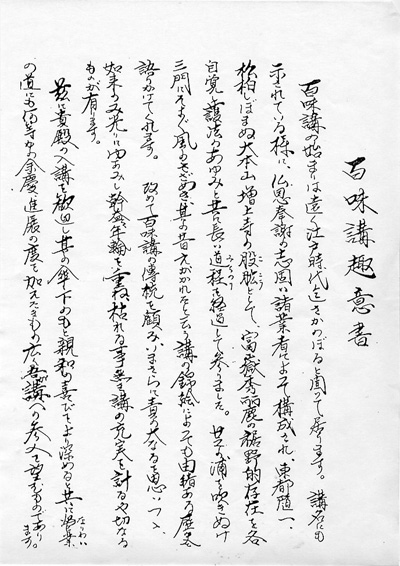 百味講趣意書
百味講の始まりは遠く江戸時代にさかのぼると聞いて居ります。講名にも
示されている様に、仏恩奉謝の志固い諸業者によって構成され、東都随一、
松柏しぼまぬ大本山増上寺の股肱として、富嶽秀麗の裾野的存在を各
自覚し護法のあゆみと共に長い道程を経過して参りました。芝の浦を吹きぬけ
三門にそよぐ風のさざめき其の昔
語りかけてくれます。改めて百味講の傳統を顧み、いまさらに責の大なるを思いつゝ、
如来のみ光に
年輪を重ね、枯れる事無き講の充実を計るや切なる
ものが有ります。
茲に貴殿の入講を歓迎し其の傘下のもと親和の喜びをより深めると共に
の道にも
余慶進展の度を加えたきもの
吾が講への参入を望むものであり
ます。